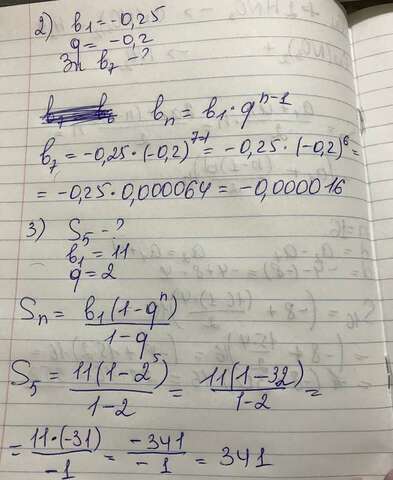 2) b₁ = -0,25
q = -0,2
b₇ - ?
bₙ = b₁ · qⁿ⁻¹
b₇ = -0,25 · (-0,2)⁷⁻¹ = -0,25 · (-0,2)⁶ =
= -0,25 · 0,000064 = -0,000016
3) S₅ - ?
b₁ = 11
q = 2
Sₙ = b₁(1-qⁿ) / 1-q
S₅ = 11(1-2⁵) / 1-2 = 11(1-32) / 1-2 =
= 11·(-31) / -1 = -341 / -1 = 341